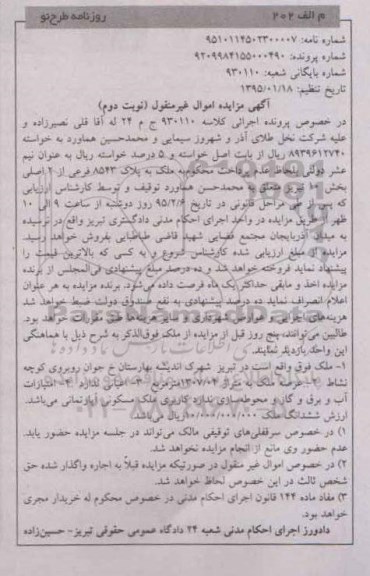 م الف ۲۰۲
روزنامه طرح‌نو
شماره نامه: ۹۵۱۰۱۱۴۵۰۲۳۰۰۰۰۷
شماره پرونده: ۹۲۰۹۹۸۴۱۵۵۰۰۰۴۹۰
شماره بایگانی شعبه: ۹۳۰۱۱۰
تاریخ تنظیم: ۱۳۹۵/۰۱/۱۸
آگهی مزایده اموال غیرمنقول (نوبت دوم)
در خصوص پرونده اجرائی کلاسه ۹۳۰۱۱۰ ج م ۲۴ له آقا قلی نصیرزاده و
علیه شرکت نخل طلای آذر و شهروز سیمایی و محمدحسین هماورد به خواسته
۸۹۳۹۶۱۲۷۴۰ ریال از بابت اصل خواسته و ۵ درصد خواسته ریال به عنوان نیم
عشر دولتی بلحاظ عدم پرداخت محکوم‌به ملک به پلاک ۸۵۴۳ فرعی از ۲ اصلی
بخش تبریز متعلق به محمدحسن هماورد توقیف و توسط کارشناس ارزیابی
که پس از طی مراحل قانونی در تاریخ ۹۵/۲/۶ روز دوشنبه از ساعت ۹ الی ۱۰
ظهر از طریق مزایده در واحد اجرای احکام مدنی دادگستری تبریز واقع در نرسیده
به میدان آذربایجان مجتمع قضایی شهید قاضی طباطبایی بفروش خواهد رسید.
مزایده از مبلغ ارزیابی شده کارشناس شروع و به کسی که بالاترین قیمت را
پیشنهاد نماید فروخته خواهد شد و ده درصد مبلغ پیشنهادی فی‌المجلس از برنده
مزایده اخذ و مابقی حداکثر یک ماه فرصت داده می‌شود. برنده مزایده به هر عنوان
اعلام انصراف نماید ده درصد پیشنهادی به نفع صندوق دولت ضبط خواهد شد
هزینه‌های اجرایی و عوارض شهرداری و سایر هزینه‌ها طبق مقررات خواهد بود.
طالبین می‌توانند، پنج روز قبل از مزایده از ملک فوق‌الذکر به شرح ذیل با هماهنگی
این واحد بازدید نمایند.
۱- ملک فوق واقع است در تبریز شهرک اندیشه بهارستان خ جوان روبروی کوچه
نشاط ۲- عرصه ملک به متراژ ۱۳۰۷/۰۴ مترمربع ۳- اعیان ندارد ۴- امتیازات
آب و برق و گاز و محوطه‌سازی ندارد کاربری ملک مسکونی آپارتمانی می‌باشد.
ارزش ششدانگ ملک ۱۰/۰۰۰/۰۰۰/۰۰۰ ریال می‌باشد.
۱) در خصوص سرقفلی‌های توقیفی مالک می‌تواند در جلسه مزایده حضور یابد.
عدم حضور وی مانع از انجام مزایده نخواهد شد.
۲) در خصوص اموال غیر منقول در صورتیکه مزایده قبلاً به اجاره واگذار شده حق
شخص ثالث در این خصوص لحاظ خواهد شد.
۳) مفاد ماده ۱۴۴ قانون اجرای احکام مدنی در خصوص محکوم له خریدار مجری
خواهد بود.
دادورز اجرای احکام مدنی شعبه ۲۴ دادگاه عمومی حقوقی تبریز- حسین‌زاده